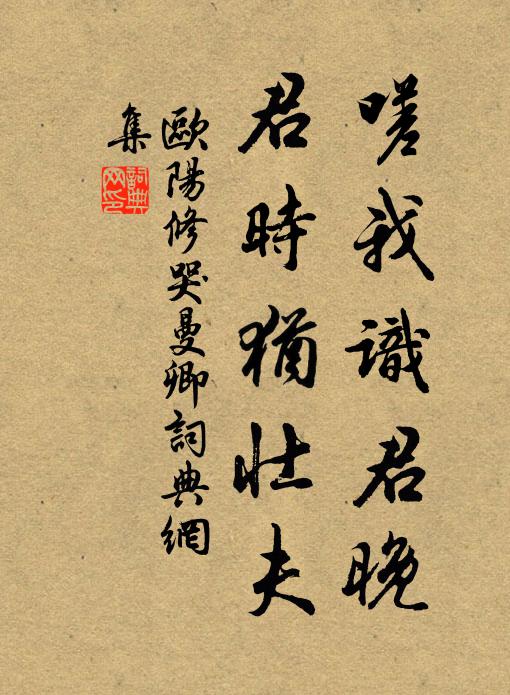 嗟我識君晚
君時猶壯夫
歐陽修哭曼卿詞典網
集
詞典
网印